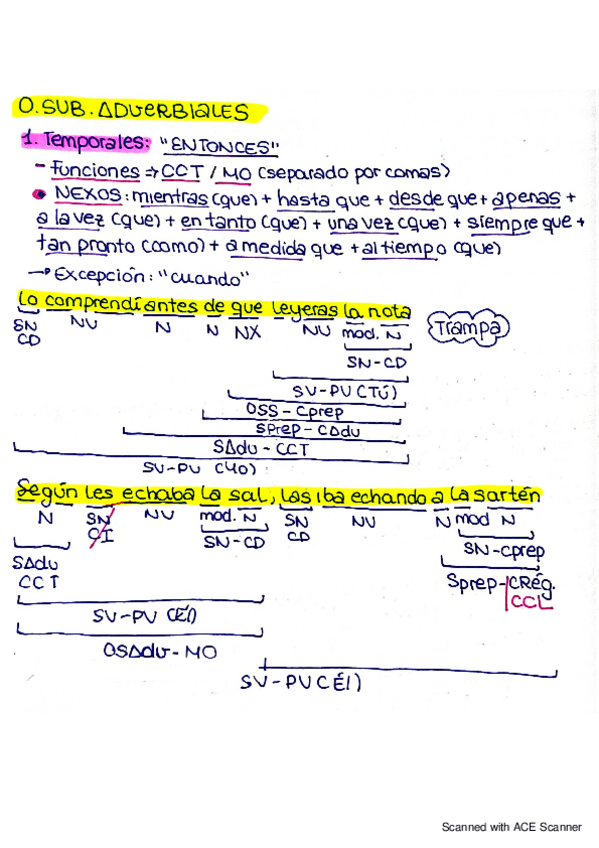 O.SUB.ADVERBIALES
1. Temporales: "ENTONCES"
- Funciones ⇒ CCT / MO (separado por comas)
• NEXOS: mientras (que) + hasta que + desde que + apenas +
a la vez (que) + en tanto (que) + una vez (que) + siempre que +
tan pronto (como) + a medida que + al tiempo (que)
→ Excepción: "cuando"
Lo comprendí antes de que leyeras la nota
SN NV N N NX NV mod. N Trampa
CD
SN-CD
SV-PV (TÚ)
OSS - Cprep
SPrep - CAdv
SAdv - CCT
SV-PV (YO)
Según les echaba la sal, las iba echando a la sartén
N SN NV mod. N SN NV N mod N
CI SN-CD CD SN-cprep
SAdv Sprep-CRég.
CCT CCL
SV-PV (ÉL)
OSAdv-MO
SV-PV (ÉL)
Scanned with ACE Scanner